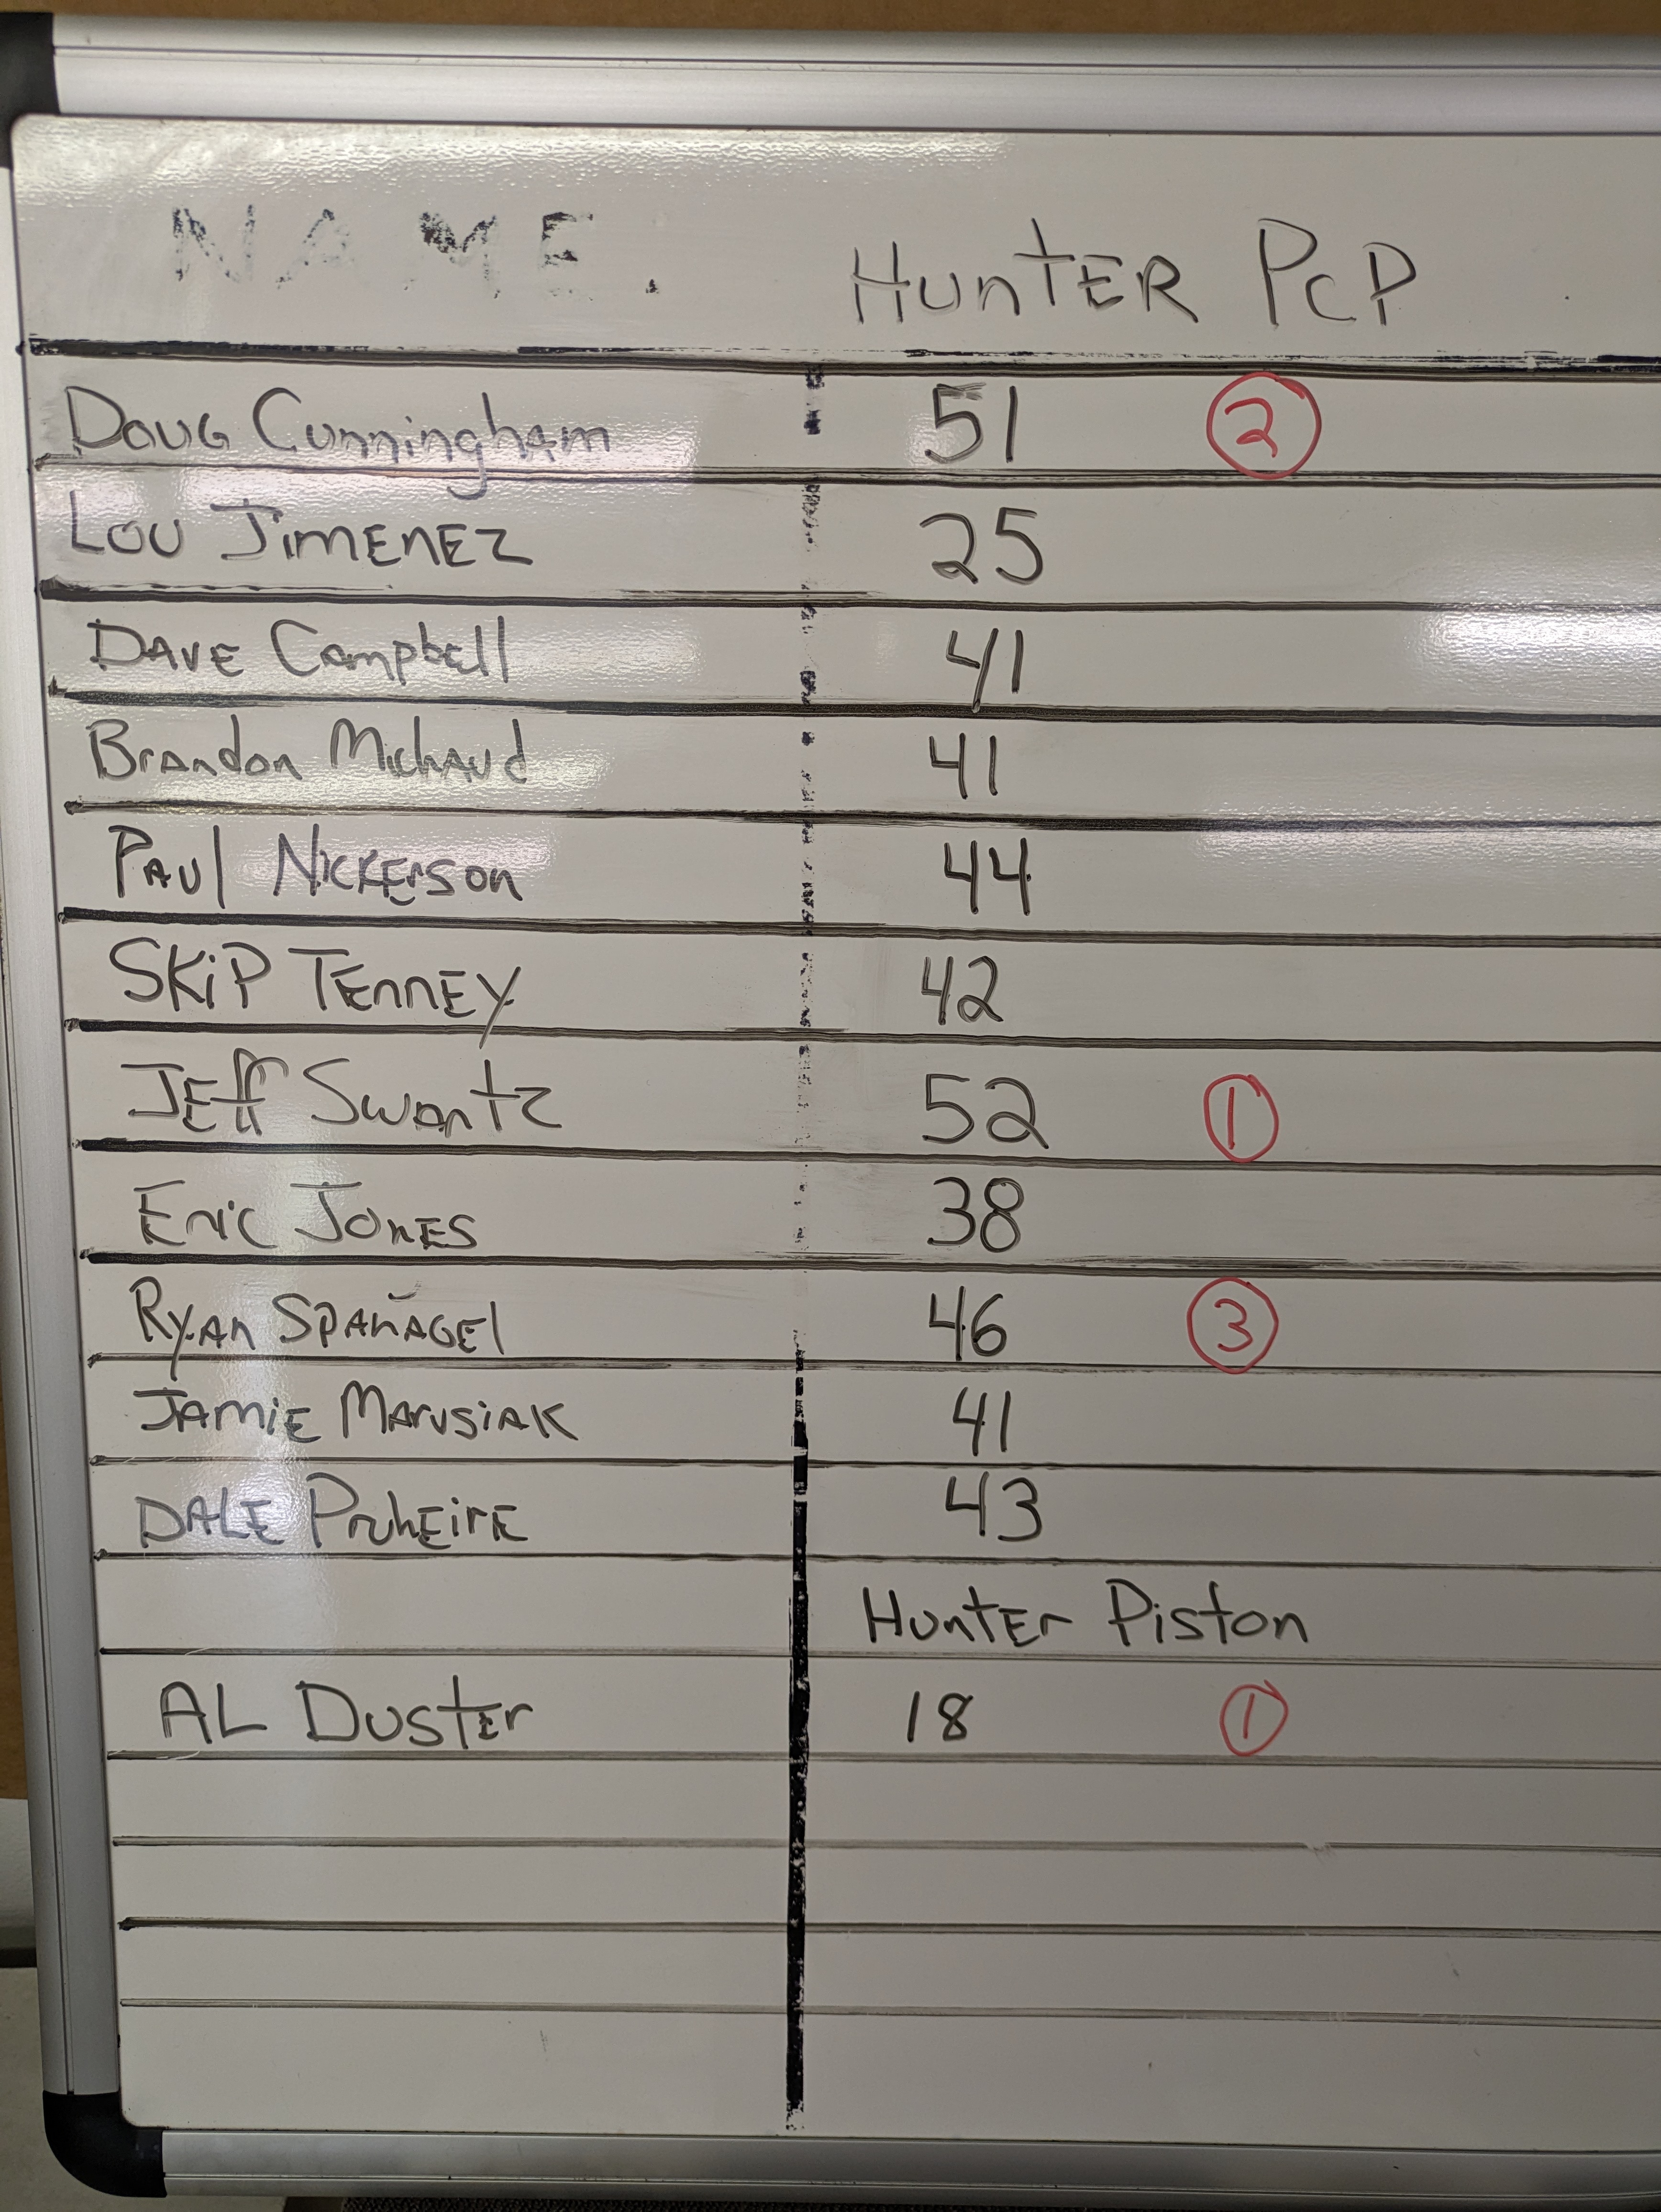 NAME.
HUNTER PCP
Doug Cunningham 51 2
Lou Jimenez 25
Dave Campbell 41
Brandon Michaud 41
Paul Nickerson 44
Skip Tenney 42
Jeff Swartz 52 1
Eric Jones 38
Ryan Spanagel 46 3
Jamie Marusiak 41
Dale 43
Hunter Piston
AL Duster 18 1